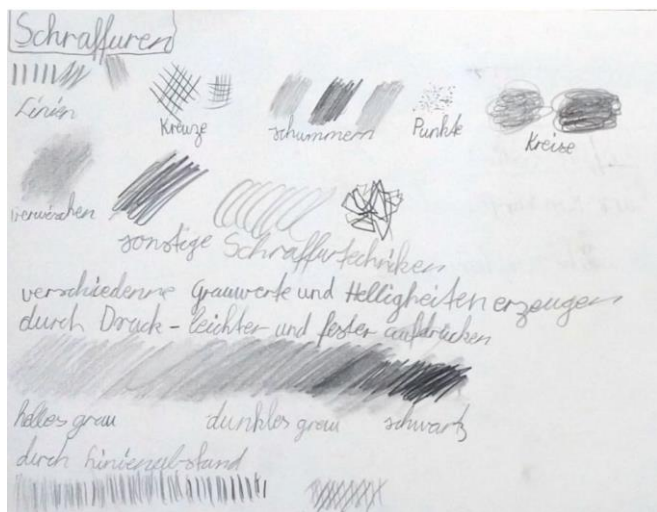 Schraffuren
Linien
Kreuze
schummern
Punkte
Kreise
verwischen
sonstige Schraffurtechniken
verschiedenne Grauwerte und Helligheiten erzeugen
durch Druck - leichter und fester aufdrücken
helles grau dunkles grau schwartz
durch Linienabstand